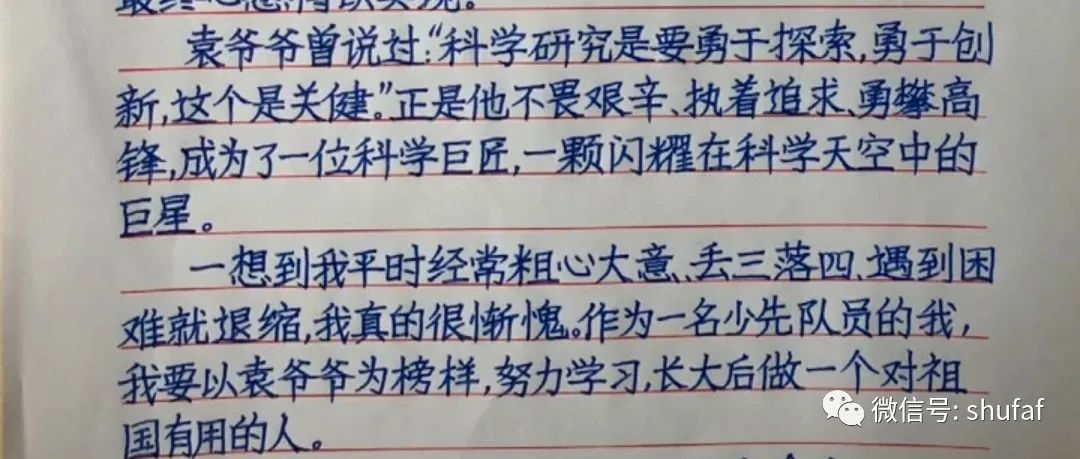 袁爷爷曾说过:“科学研究是要勇于探索,勇于创
新,这个是关健。”正是他不畏艰辛、执着追求、勇攀高
锋,成为了一位科学巨匠,一颗闪耀在科学天空中的
巨星。
一想到我平时经常粗心大意、丢三落四、遇到困
难就退缩,我真的很惭愧。作为一名少先队员的我,
我要以袁爷爷为榜样,努力学习,长大后做一个对祖
国有用的人。
微信号: shufaf